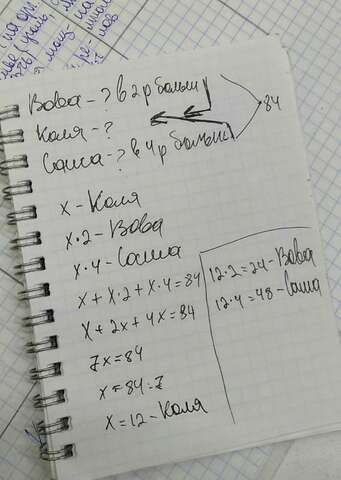 Вова - ? в 2 р больше
Коля - ?
84
Саша - ? в 4 р больше
х - Коля
х·2 - Вова
х·4 - Саша
х + х·2 + х·4 = 84
х + 2х + 4х = 84
7х = 84
х = 84:7
х = 12 - Коля
12·2 = 24 - Вова
12·4 = 48 - Саша